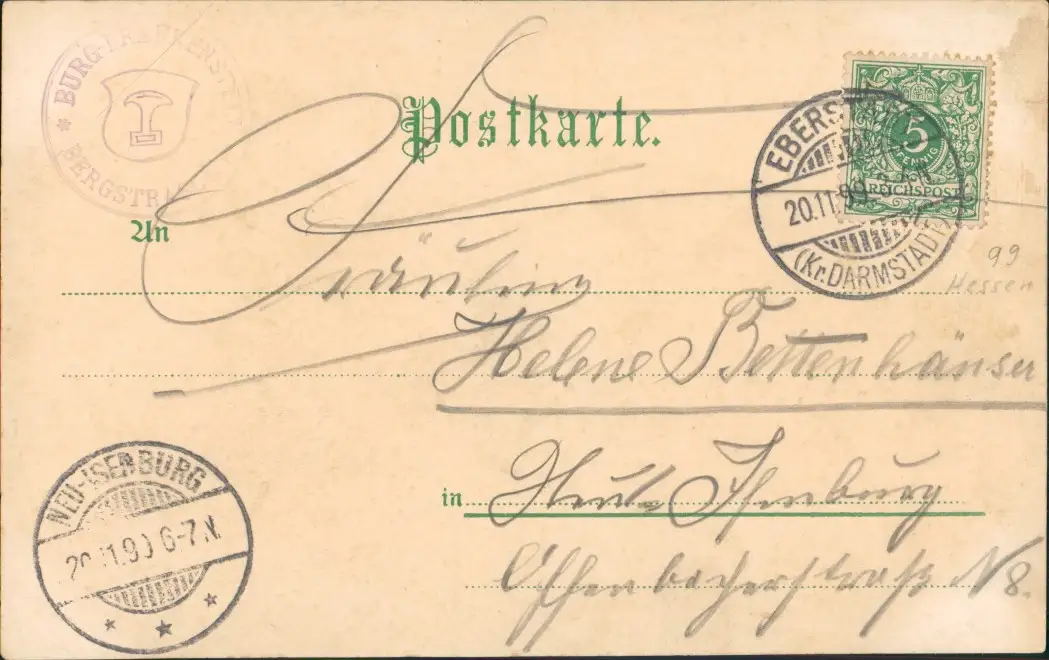 BURG-FRANKENSTEIN
* BERGSTR
Postkarte.
5
PFENNIG
REICHSPOST
EBERST
20.11.99
(Kr. DARMSTADT)
99
Hessen
An
Fräulein
Helene Bettenhäuser
in Neu-Isenburg
Offenbacherstraße N 8.
NEU-ISENBURG
20.11.99 6-7 N.